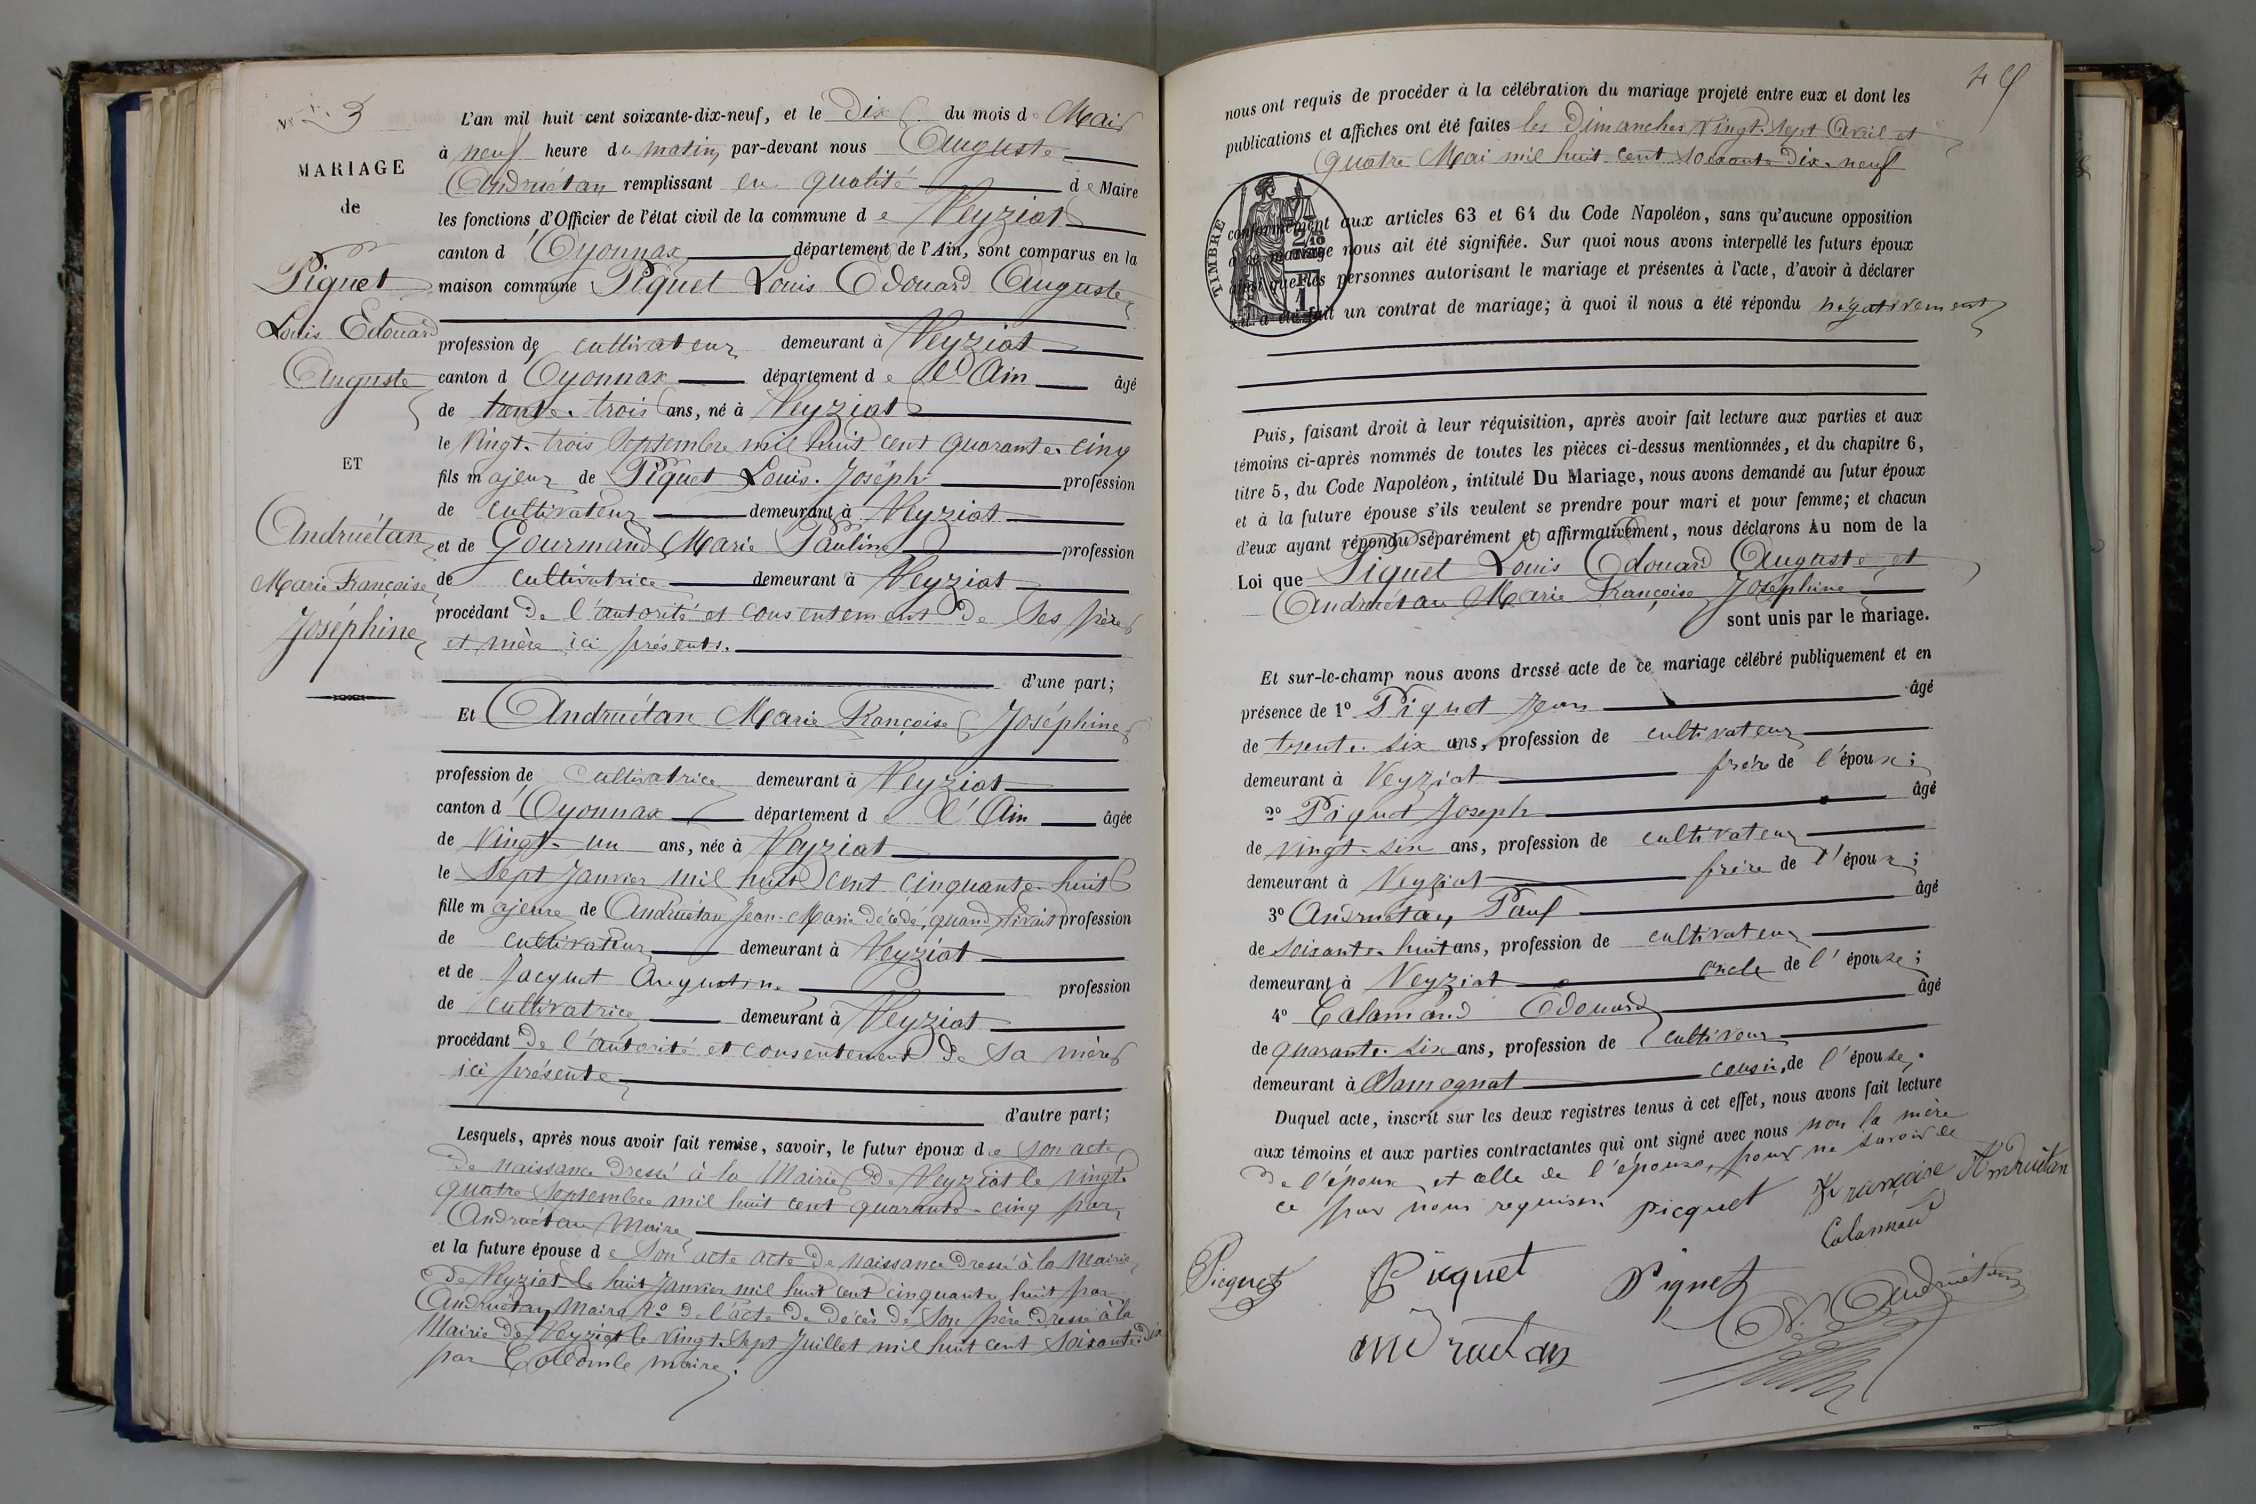 No 3
MARIAGE
de
Piquet
Louis Edouard
Auguste
ET
Andruétan
Marie Françoise
Joséphine
L'an mil huit cent soixante-dix-neuf, et le Dix du mois d Mai
à neuf heure du matin, par-devant nous Auguste
Andruétan remplissant en qualité de Maire
les fonctions d'Officier de l'état civil de la commune de Veyziat
canton d'Oyonnax département de l'Ain, sont comparus en la
maison commune Piquet Louis Edouard Auguste
profession de cultivateur demeurant à Veyziat
canton d'Oyonnax département de l'Ain âgé
de trente-trois ans, né à Veyziat
le vingt-trois Septembre mil huit cent quarante-cinq
fils majeur de Piquet Louis-Joséph profession
de cultivateur demeurant à Veyziat
et de Gourmand Marie Pauline profession
de cultivatrice demeurant à Veyziat
procédant de l'autorité et consentement de ses père
et mère ici présents.
d'une part;
Et Andruétan Marie Françoise Joséphine
profession de cultivatrice demeurant à Veyziat
canton d'Oyonnax département de l'Ain âgée
de vingt-un ans, née à Veyziat
le sept Janvier mil huit cent cinquante-huit
fille majeure de Andruétan Jean-Marie décédé, quand vivait profession
de cultivateur demeurant à Veyziat
et de Jacquet Augustine profession
de cultivatrice demeurant à Veyziat
procédant de l'autorité et consentement de sa mère
ici présente
d'autre part;
Lesquels, après nous avoir fait remise, savoir, le futur époux de son acte
de naissance dressé à la Mairie de Veyziat le vingt
quatre Septembre mil huit cent quarante-cinq par
Andruétan Maire
et la future épouse de son acte acte de naissance dressé à la Mairie
de Veyziat le huit Janvier mil huit cent cinquante huit par
Andruétan Maire 2o de l'acte de décès de son père dressé à la
Mairie de Veyziat le vingt-sept Juillet mil huit cent soixante-dix
par Collomb maire.
nous ont requis de procéder à la célébration du mariage projeté entre eux et dont les
publications et affiches ont été faites les Dimanches vingt-sept Avril et
quatre Mai mil huit cent soixante-dix-neuf
TIMBRE
conformément aux articles 63 et 64 du Code Napoléon, sans qu'aucune opposition
à ce mariage nous ait été signifiée. Sur quoi nous avons interpellé les futurs époux
ainsi que les personnes autorisant le mariage et présentes à l'acte, d'avoir à déclarer
s'il a été fait un contrat de mariage; à quoi il nous a été répondu négativement
Puis, faisant droit à leur réquisition, après avoir fait lecture aux parties et aux
témoins ci-après nommés de toutes les pièces ci-dessus mentionnées, et du chapitre 6,
titre 5, du Code Napoléon, intitulé Du Mariage, nous avons demandé au futur époux
et à la future épouse s'ils veulent se prendre pour mari et pour femme; et chacun
d'eux ayant répondu séparément et affirmativement, nous déclarons Au nom de la
Loi que Piquet Louis Edouard Auguste et
Andruétan Marie Françoise Joséphine
sont unis par le mariage.
Et sur-le-champ nous avons dressé acte de ce mariage célébré publiquement et en
présence de 1o Piquet Jean âgé
de trente-six ans, profession de cultivateur
demeurant à Veyziat frère de l'époux;
2o Piquet Joseph âgé
de vingt-six ans, profession de cultivateur
demeurant à Veyziat frère de l'époux;
3o Andruétan Paul âgé
de soixante-huit ans, profession de cultivateur
demeurant à Veyziat oncle de l'épouse;
4o Calamand Edouard âgé
de quarante-six ans, profession de cultiveur
demeurant à Samognat cousin de l'épouse.
Duquel acte, inscrit sur les deux registres tenus à cet effet, nous avons fait lecture
aux témoins et aux parties contractantes qui ont signé avec nous non la mère
de l'époux et celle de l'épouse, pour ne savoir de
ce par nous requises picquet Françoise Andruétan
Calamand
Picquet Picquet Piquet
Andruétan